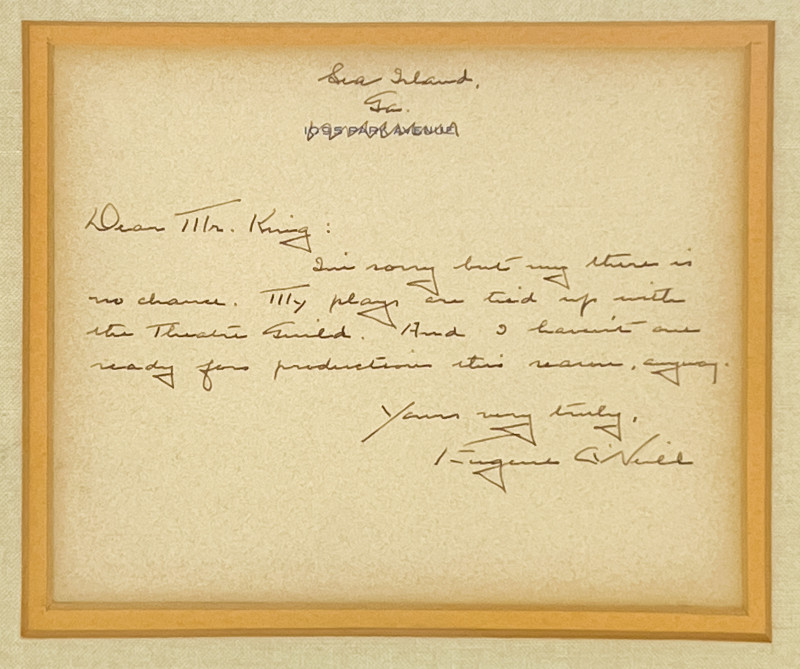 Sea Island,
Ga.
1095 PARK AVENUE
Dear Mr. King:
I'm sorry but my there is
no chance. My plays are tied up with
the Theatre Guild. And I haven't one
ready for production this season, anyway.
Yours very truly,
Eugene O'Neill